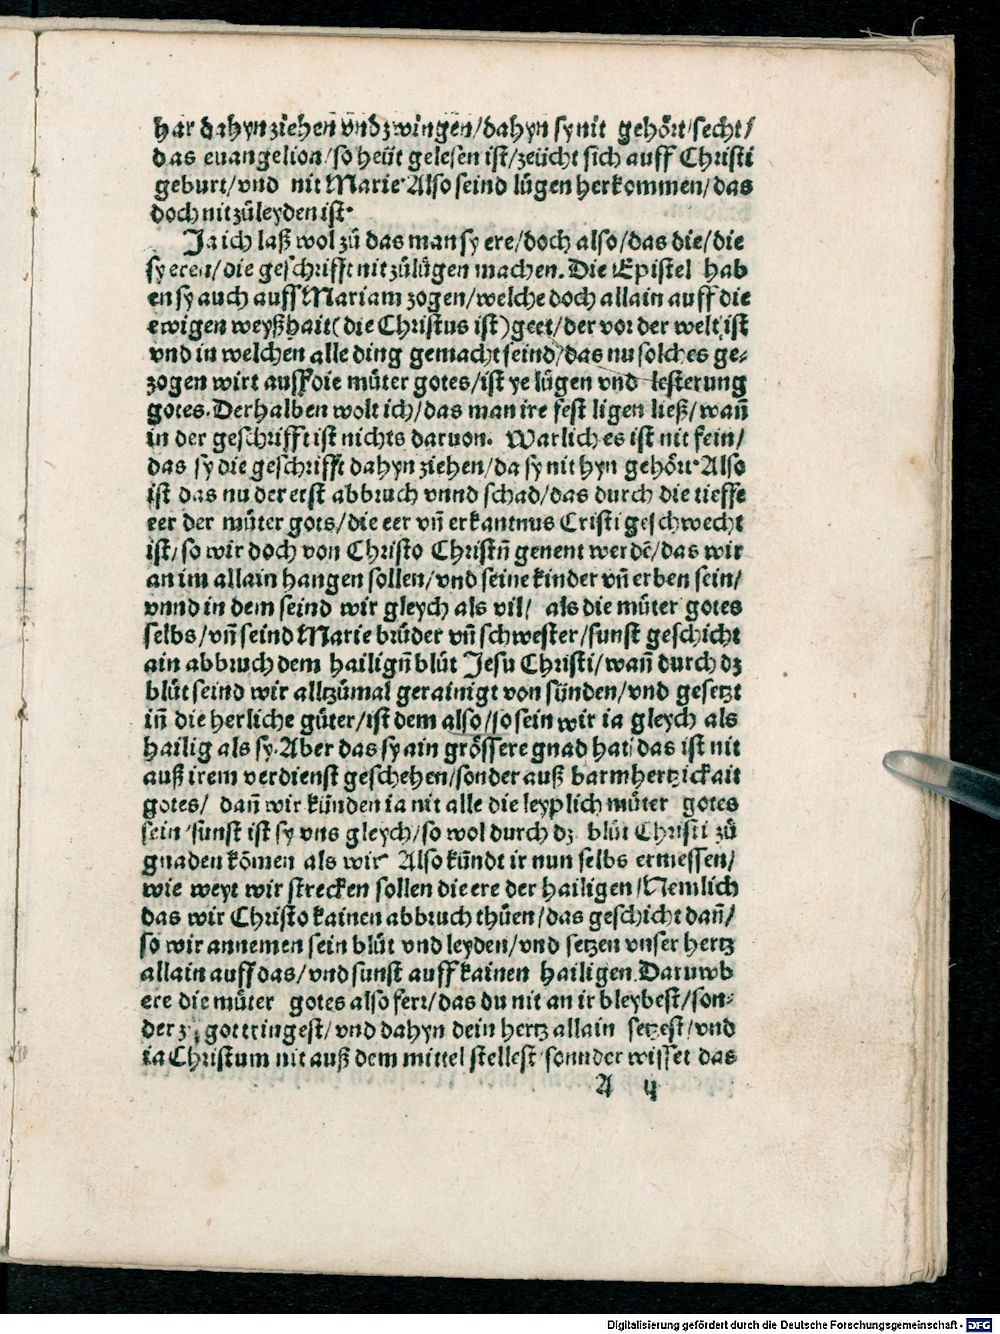 har dahyn ziehen vnd zwingen/dahyn sy nit gehört/secht/
das euangelion/so heüt gelesen ist/zeücht sich auff Christi
geburt/vnd nit Marie. Also seind lügen herkommen/das
doch nit zůleyden ist.
Ja ich laß wol zů das man sy ere/doch also/das die/die
sy eren/die geschrifft nit zůlügen machen. Die Epistel hab
en sy auch auff Mariam zogen/welche doch allain auff die
ewigen weyßhait (die Christus ist) geet/der vor der welt ist
vnd in welchen alle ding gemacht seind/das nu solches ge⸗
zogen wirt auff die můter gotes/ist ye lügen vnd lesterung
gotes. Derhalben wolt ich/das man ire fest ligen ließ/wañ
in der geschrifft ist nichts daruon. Warlich es ist nit fein/
das sy die geschrifft dahyn ziehen/da sy nit hyn gehört. Also
ist das nu der erst abbruch vnnd schad/das durch die tieffe
eer der můter gots/die eer vñ erkantnus Cristi geschwecht
ist/so wir doch von Christo Christñ genent werdē/das wir
an im allain hangen sollen/vnd seine kinder vñ erben sein/
vnnd in dem seind wir gleych als vil/ als die můter gotes
selbs/vñ seind Marie brüder vñ schwester/sunst geschicht
ain abbruch dem hailigñ blůt Jesu Christi/wañ durch dz
blůt seind wir alltzůmal gerainigt von sünden/vnd gesetzt
iñ die herliche güter/ist dem also/so sein wir ia gleych als
hailig als sy. Aber das sy ain grössere gnad hat/das ist nit
auß irem verdienst geschehen/sonder auß barmhertzickait
gotes/ dañ wir künden ia nit alle die leyplich můter gotes
sein/sunst ist sy vns gleych/so wol durch dz blůt Christi zů
gnaden kōmen als wir. Also kündt ir nun selbs ermessen/
wie weyt wir strecken sollen die ere der hailigen/Nemlich
das wir Christo kainen abbruch thüen/das geschicht dañ/
so wir annemen sein blůt vnd leyden/vnd setzen vnser hertz
allain auff das/vnd sunst auff kainen hailigen. Daruwb
ere die můter gotes also fert/das du nit an ir bleybest/son⸗
der zů got tringest/vnd dahyn dein hertz allain setzest/vnd
ia Christum nit auß dem mittel stellest/sonnder wisset das
A ij
Digitalisierung gefördert durch die Deutsche Forschungsgemeinschaft - DFG